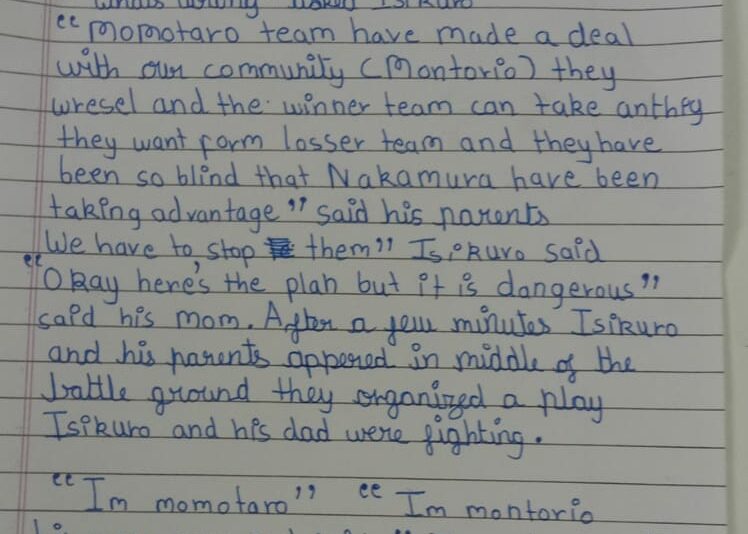 whats wrong asked Isikuro
"Momotaro team have made a deal
with our community (Montorio) they
wresel and the winner team can take anthfy
they want form losser team and they have
been so blind that Nakamura have been
taking advantage" said his parents
We have to stop them" Isikuro said
"Okay here's the plan but it is dangerous"
said his mom. After a few minutes Isikuro
and his parents appered in middle of the
battle ground they organized a play
Isikuro and his dad were fighting.
"Im momotaro" "Im montorio